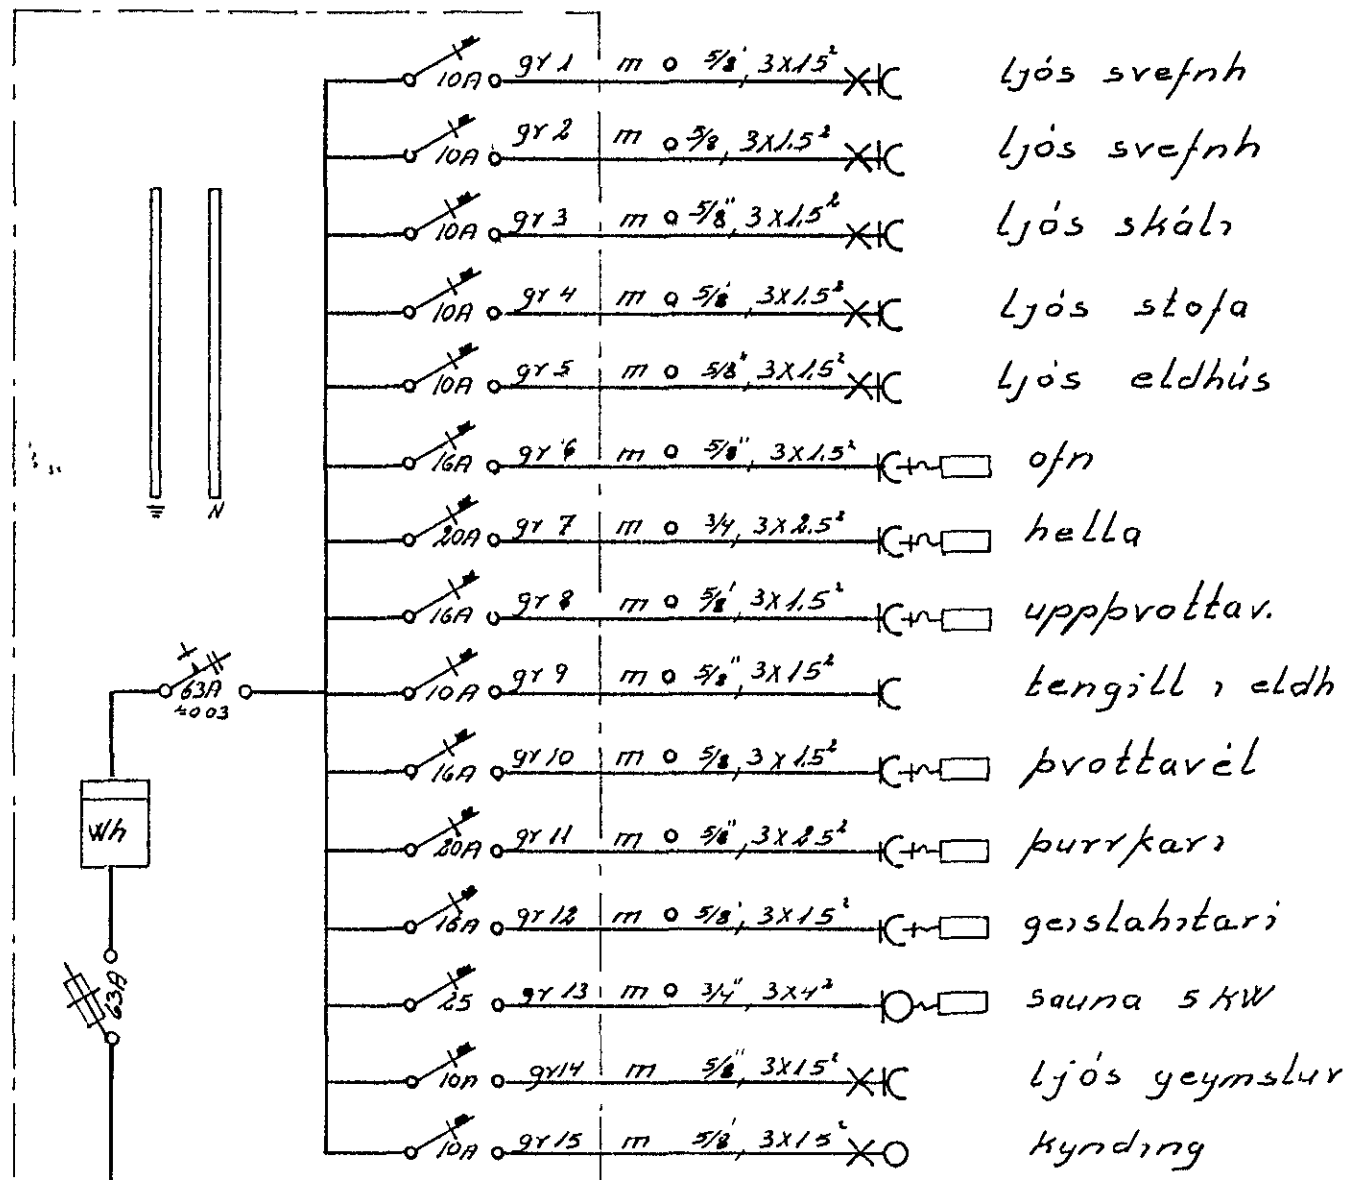 10A gr 1 m 5/8' 3x15² ljós svefnh
10A gr 2 m 5/8, 3x1.5² ljós svefnh
10A gr 3 m 5/8", 3x1.5² ljós skáli
10A gr 4 m 5/8', 3x1.5² ljós stofa
10A gr 5 m 5/8", 3x1.5² ljós eldhús
16A gr 6 m 5/8", 3x1.5² ofn
N
20A gr 7 m 3/4, 3x2.5² hella
16A gr 8 m 5/8', 3x1.5² uppþvottav.
63A
4003
10A gr 9 m 5/8", 3x15² tengill i eldh
16A gr 10 m 5/8, 3x1.5² þvottavél
Wh
20A gr 11 m 5/8", 3x2.5² þurrkari
16A gr 12 m 5/8', 3x15² geislahitari
63A
25 gr 13 m 3/4", 3x4² sauna 5 KW
10A gr14 m 5/8", 3x15² ljós geymslur
10A gr 15 m 5/8', 3x15² kynding